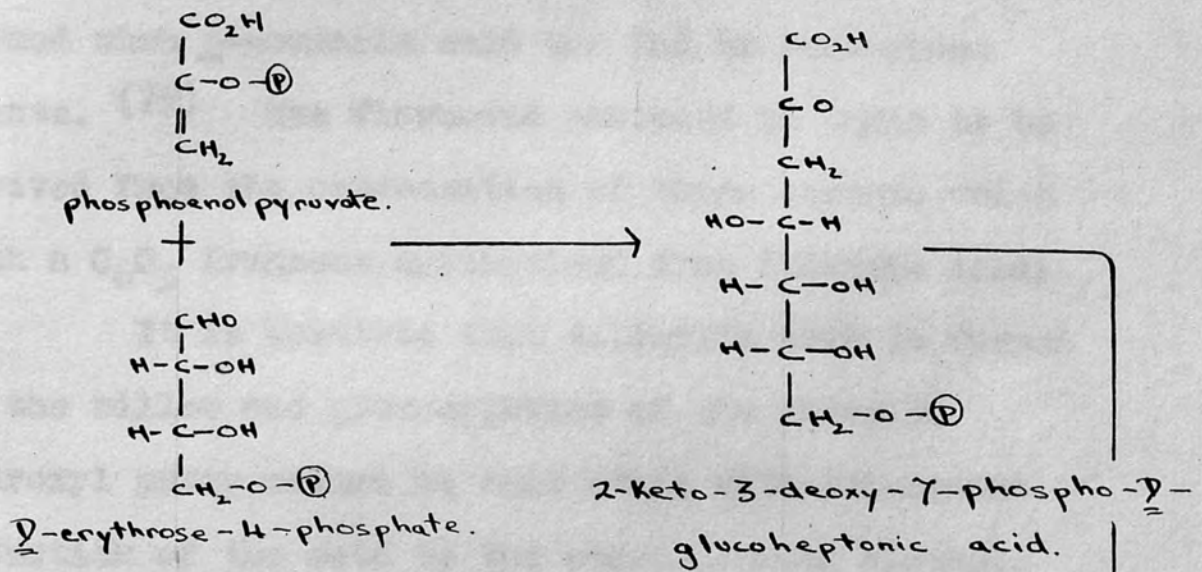 CO₂H
C-O-Ⓟ
CH₂
phosphoenol pyruvate.
+
CHO
H-C-OH
H-C-OH
CH₂-O-Ⓟ
D-erythrose-4-phosphate.
CO₂H
CO
CH₂
HO-C-H
H-C-OH
H-C-OH
CH₂-O-Ⓟ
2-keto-3-deoxy-7-phospho-D-
glucoheptonic acid.